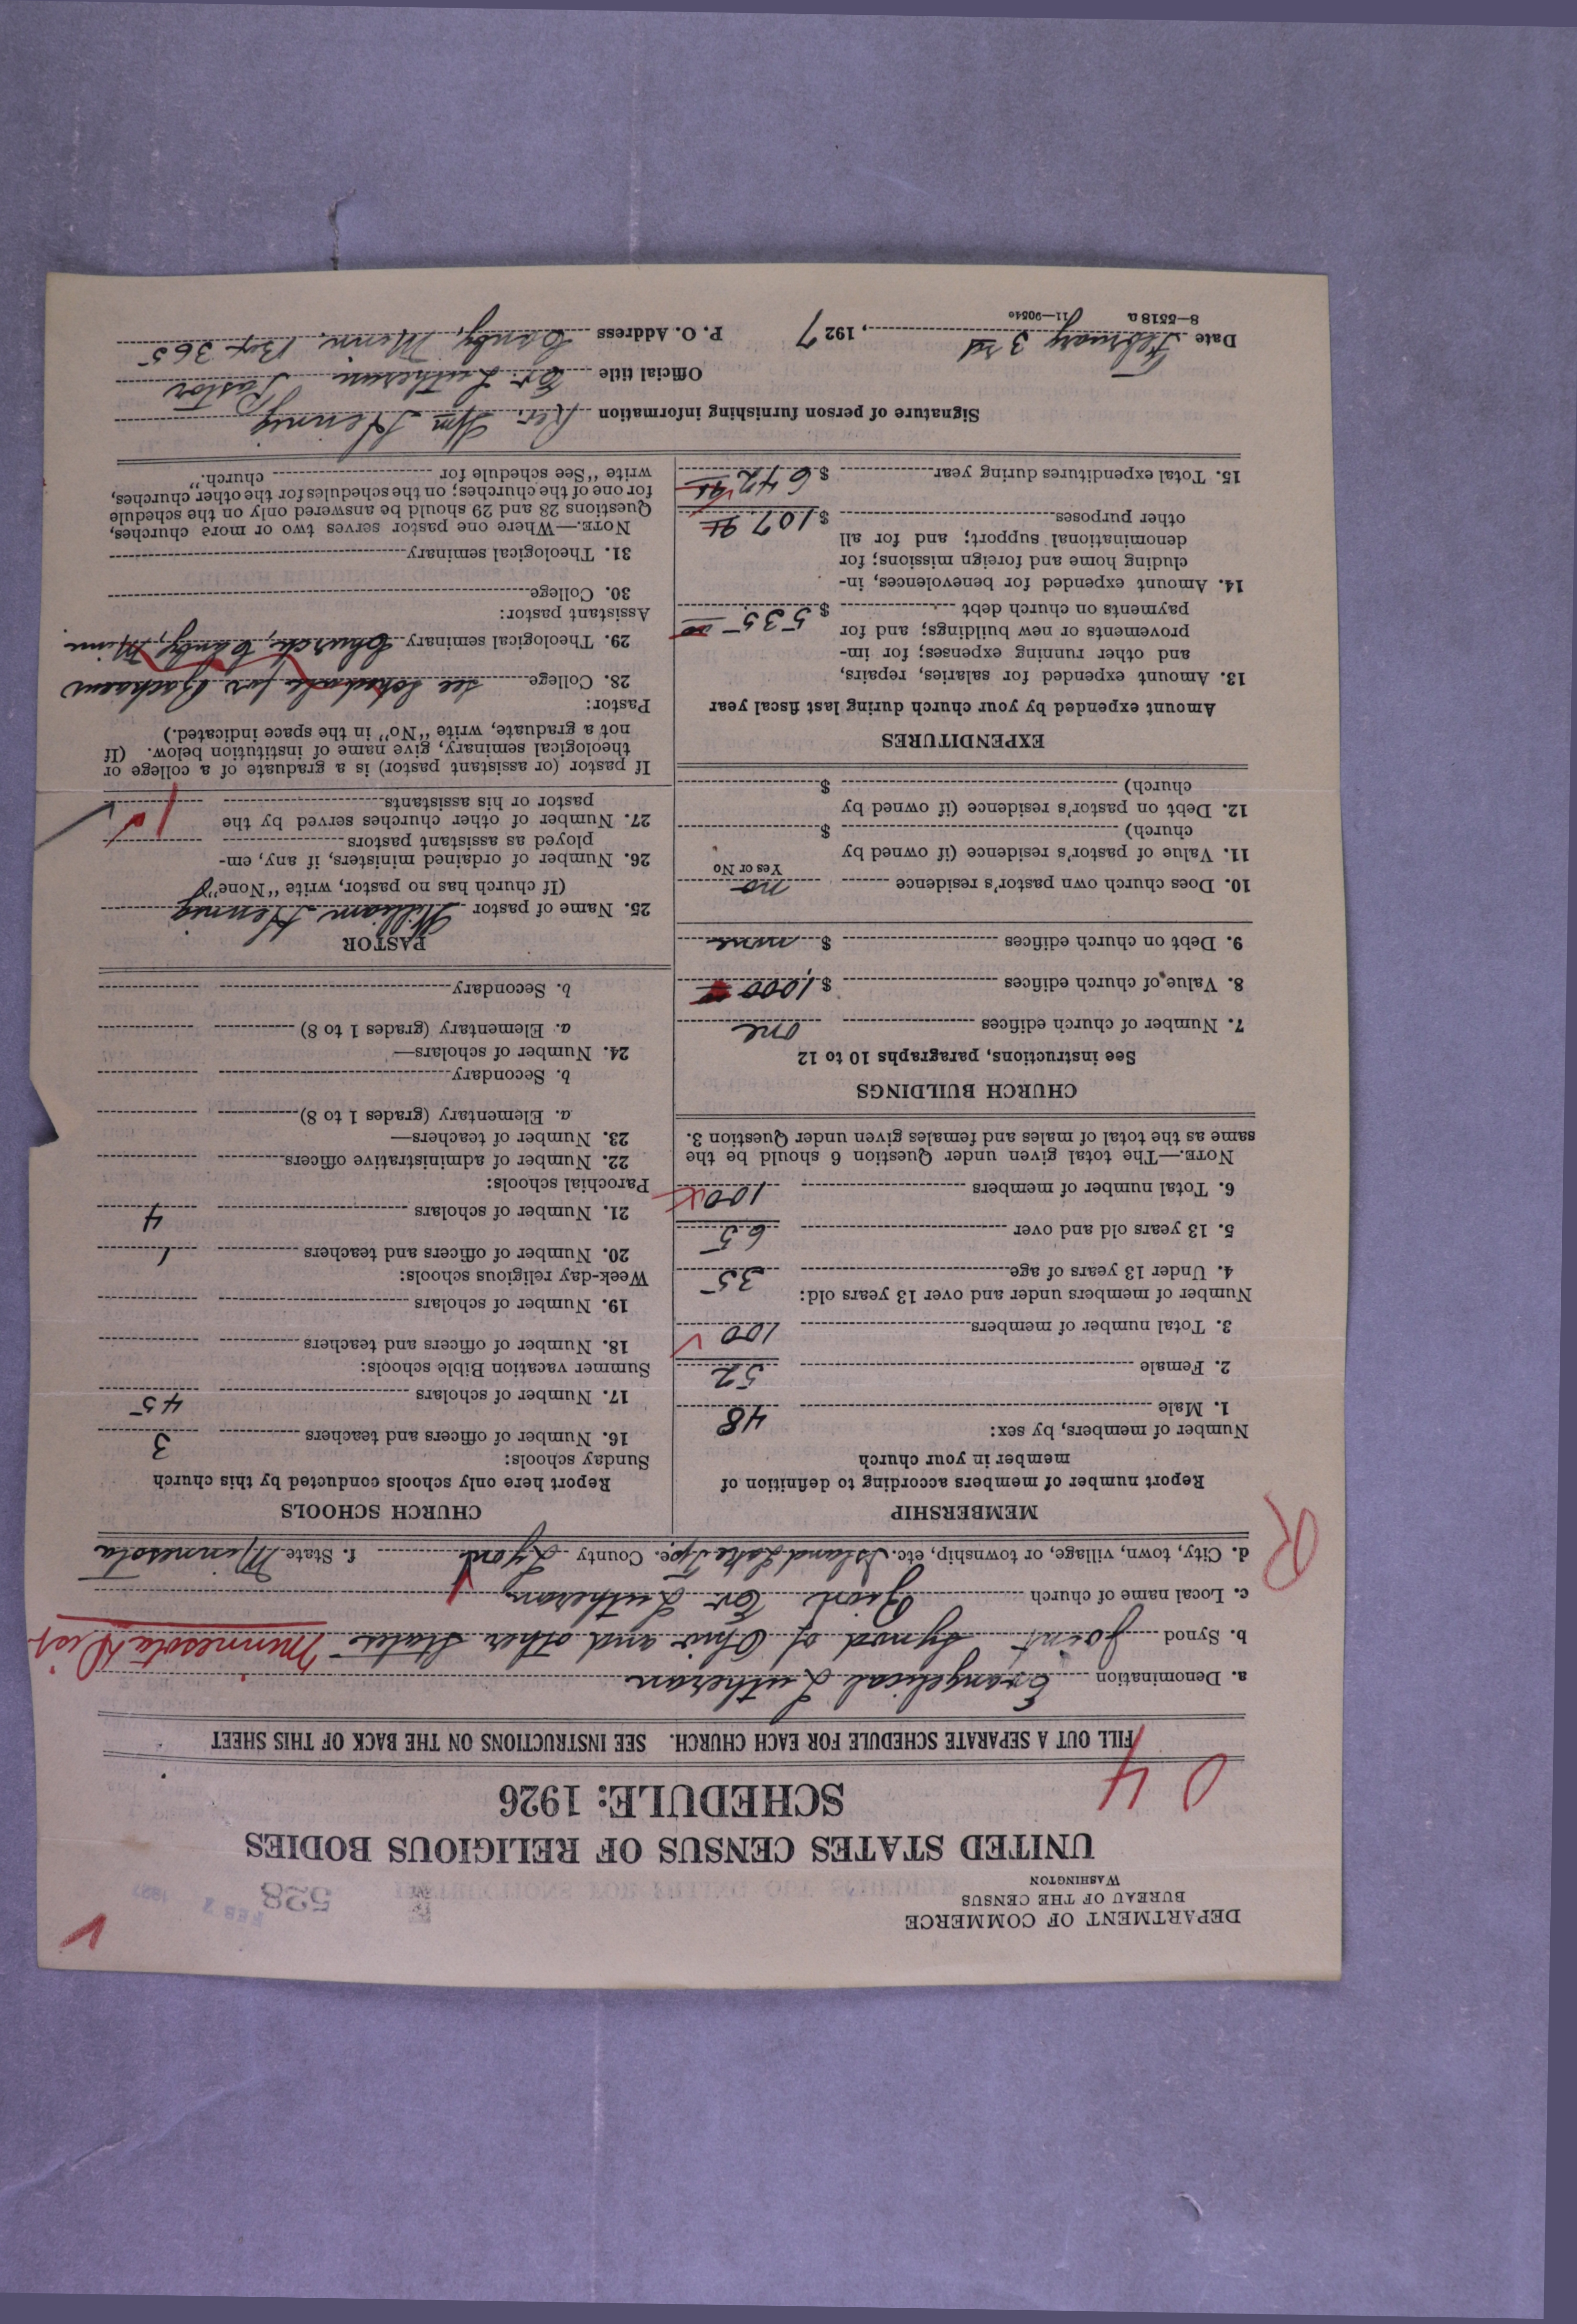 DEPARTMENT OF COMMERCE
BUREAU OF THE CENSUS
WASHINGTON
528
FEB 3 1927
UNITED STATES CENSUS OF RELIGIOUS BODIES
SCHEDULE: 1926
0 4
FILL OUT A SEPARATE SCHEDULE FOR EACH CHURCH. SEE INSTRUCTIONS ON THE BACK OF THIS SHEET
a. Denomination Evangelical Lutheran
b. Synod Joint Synod of Ohio and other States Minnesota Dist.
c. Local name of church Zion Ev. Lutheran
d. City, town, village, or township, etc. Island Lake Twp. e. County Lyon f. State Minnesota
R
MEMBERSHIP
Report number of members according to definition of
member in your church
Number of members, by sex:
1. Male 48
2. Female 52
3. Total number of members 100
Number of members under and over 13 years old:
4. Under 13 years of age 35
5. 13 years old and over 65
6. Total number of members 100
NOTE.—The total given under Question 6 should be the
same as the total of males and females given under Question 3.
CHURCH BUILDINGS
See instructions, paragraphs 10 to 12
7. Number of church edifices one
8. Value of church edifices $ 1,000
9. Debt on church edifices $ none
10. Does church own pastor's residence no
Yes or No
11. Value of pastor's residence (if owned by
church) $
12. Debt on pastor's residence (if owned by
church) $
EXPENDITURES
Amount expended by your church during last fiscal year
13. Amount expended for salaries, repairs,
and other running expenses; for im-
provements or new buildings; and for
payments on church debt $ 535 00
14. Amount expended for benevolences, in-
cluding home and foreign missions; for
denominational support; and for all
other purposes $ 107 95
15. Total expenditures during year $ 642 95
CHURCH SCHOOLS
Report here only schools conducted by this church
Sunday schools:
16. Number of officers and teachers 3
17. Number of scholars 45
Summer vacation Bible schools:
18. Number of officers and teachers
19. Number of scholars
Week-day religious schools:
20. Number of officers and teachers 1
21. Number of scholars 4
Parochial schools:
22. Number of administrative officers
23. Number of teachers—
a. Elementary (grades 1 to 8)
b. Secondary
24. Number of scholars—
a. Elementary (grades 1 to 8)
b. Secondary
PASTOR
25. Name of pastor William Hennig
(If church has no pastor, write "None")
26. Number of ordained ministers, if any, em-
ployed as assistant pastors
27. Number of other churches served by the
pastor or his assistants 1
If pastor (or assistant pastor) is a graduate of a college or
theological seminary, give name of institution below. (If
not a graduate, write "No" in the space indicated.)
Pastor:
28. College see schedule for
29. Theological seminary Church, Canby, Minn.
Assistant pastor:
30. College
31. Theological seminary
NOTE.—Where one pastor serves two or more churches,
Questions 28 and 29 should be answered only on the schedule
for one of the churches; on the schedules for the other churches,
write "See schedule for church."
Signature of person furnishing information Rev. Wm Hennig
Official title Ev. Lutheran Pastor
Date February 3rd, 1927 P. O. Address Canby, Minn. Box 365
8—5518 a 11—9054